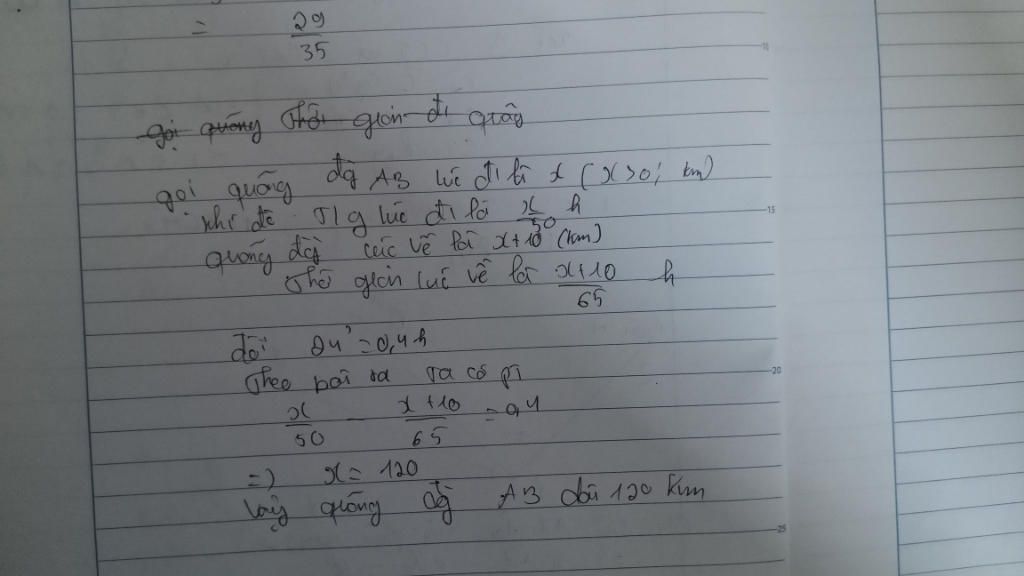 = 29/35
gọi quãng thời gian đi quãng
gọi quãng đg AB lúc đi là x (x>0; km)
khi đó T/g lúc đi là x/50 h
quãng đg lúc về là x+10 (km)
Thời gian lúc về là x+10/65 h
đổi 24' = 0,4h
Theo bài ra ta có pt
x/50 - x+10/65 = 0,4
=) x = 120
Vậy quãng đg AB dài 120 km
10
15
20
25